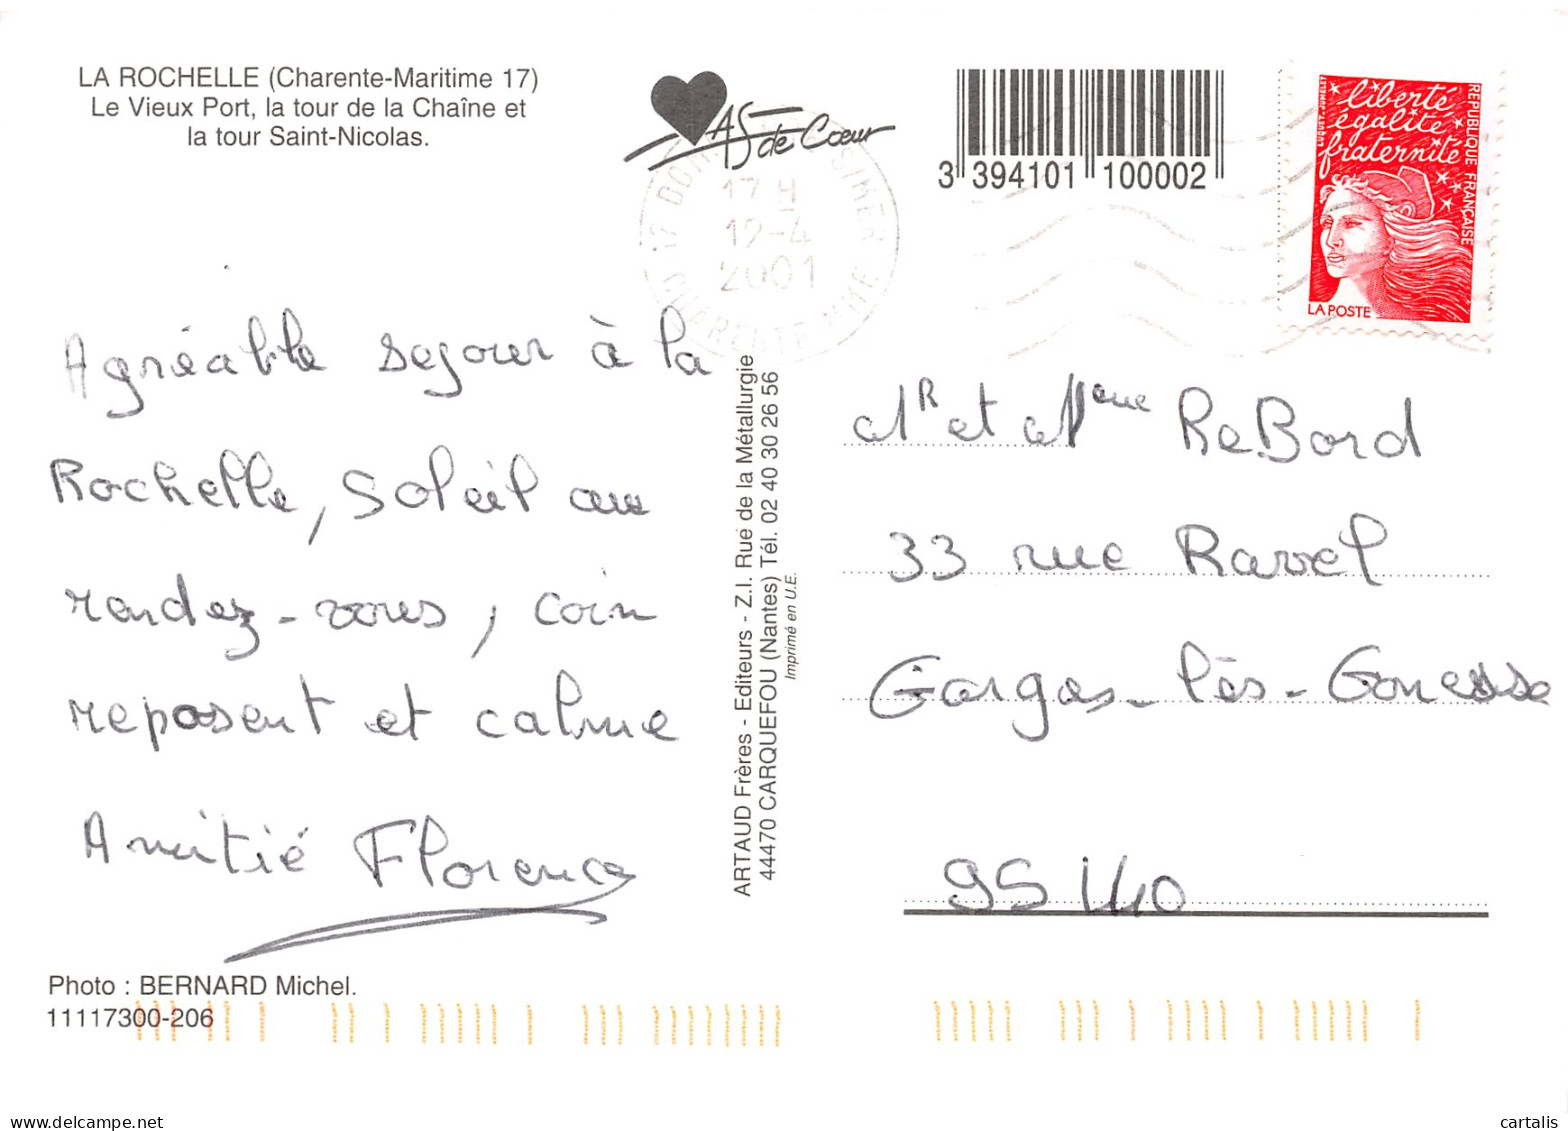 LA ROCHELLE (Charente-Maritime 17)
Le Vieux Port, la tour de la Chaîne et
la tour Saint-Nicolas.
AS de Cœur
3 394101 100002
liberté
égalité
fraternité
REPUBLIQUE FRANÇAISE
LUQUET JUMELET
LA POSTE
17 H
12-4
2001
CHARENTE MME
Agréable sejour à la
Rochelle, Soleil au
rendez-vous, coin
reposent et calme
Amitié Florence
ARTAUD Frères - Editeurs - Z.I. Rue de la Métallurgie
44470 CARQUEFOU (Nantes) Tél. 02 40 30 26 56
Imprimé en U.E.
Mr et Mme ReBord
33 rue Ravel
Gargas-lès-Gonesse
95140
Photo : BERNARD Michel.
11117300-206
cartalis
delcampe.net